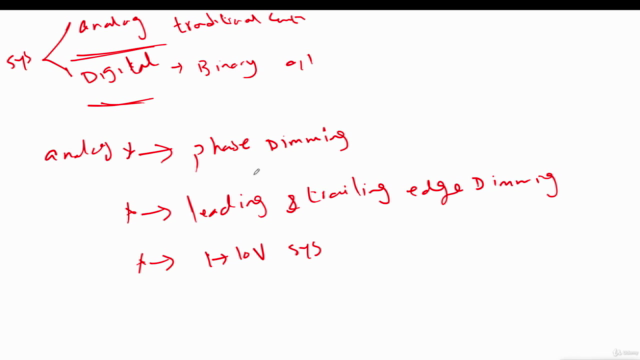 sys
analog traditional
Digital → Binary 0,1
analog * → phase Dimming
* → leading & trailing edge Dimming
* → 1→10V sys